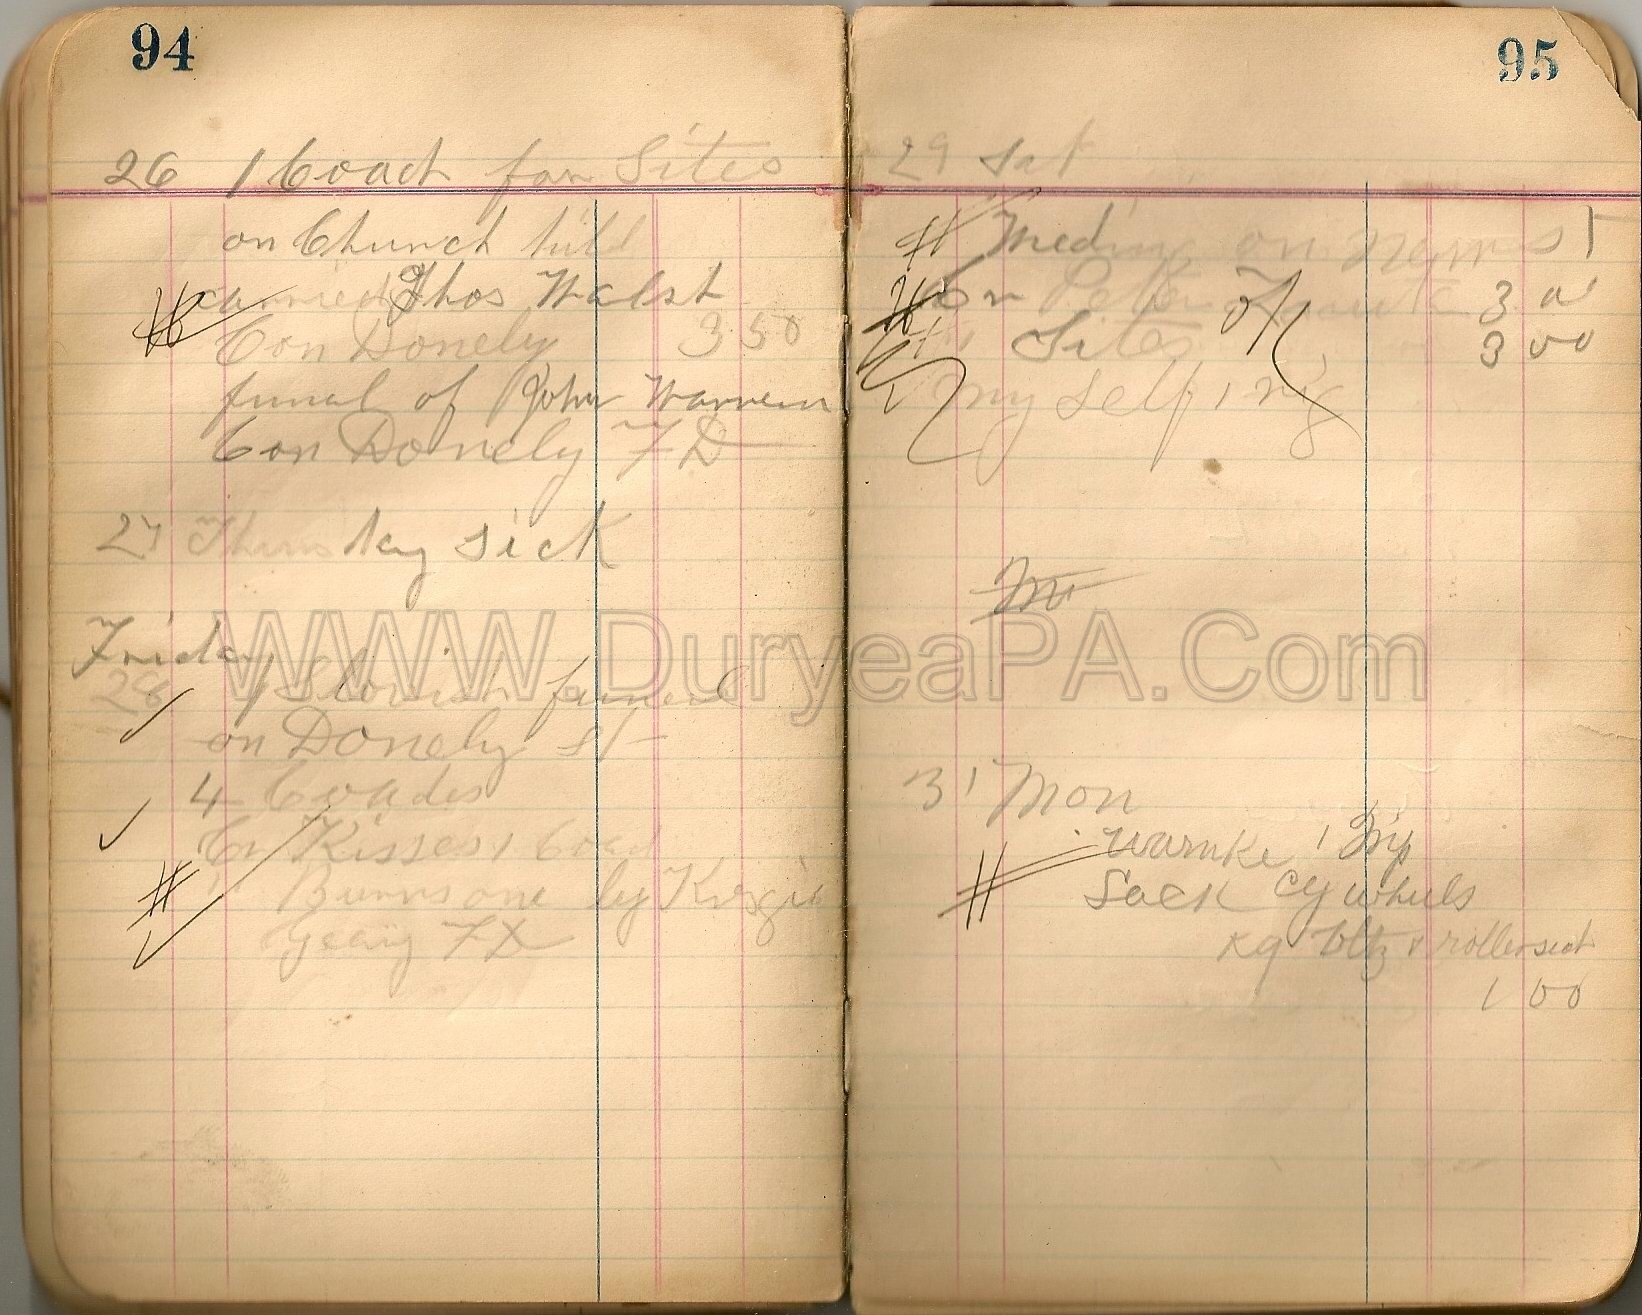 94
26 1 Coach for Sites
on Church hill
carried Thos Walsh
Con Donely 3 50
funal of John Warren
Con Donely FD
27 Thursday sick
Friday
28 1 Slovish funeral
on Donely st
4 Coaches
Kisses 1 Coach
" Burns one by
FD
95
29 Sat
# Weding on st
3 00
Sites 3 00
my self 1 rig
31 Mon
# Warnke 1 Trip
Sack Cy wheels
Kg Bltz & roller seat
1 00
WWW.DuryeaPA.Com